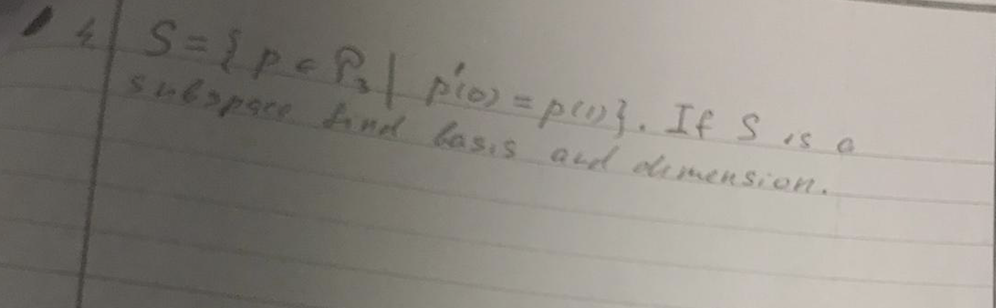 4 S = { p ∈ P₃ | p'(0) = p(1) }. If S is a
subspace find basis and dimension.